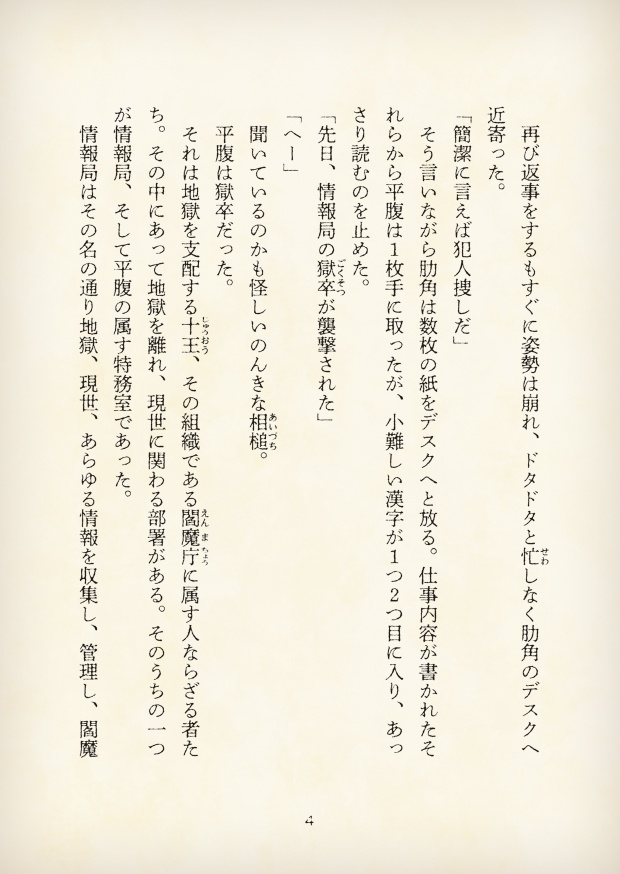 再び返事をするもすぐに姿勢は崩れ、ドタドタと忙しなく肋角のデスクへ
近寄った。
「簡潔に言えば犯人捜しだ」
そう言いながら肋角は数枚の紙をデスクへと放る。仕事内容が書かれたそ
れらから平腹は1枚手に取ったが、小難しい漢字が1つ2つ目に入り、あっ
さり読むのを止めた。
「先日、情報局の獄卒が襲撃された」
「へー」
聞いているのかも怪しいのんきな相槌。
平腹は獄卒だった。
それは地獄を支配する十王、その組織である閻魔庁に属す人ならざる者た
ち。その中にあって地獄を離れ、現世に関わる部署がある。そのうちの一つ
が情報局、そして平腹の属す特務室であった。
情報局はその名の通り地獄、現世、あらゆる情報を収集し、管理し、閻魔
4